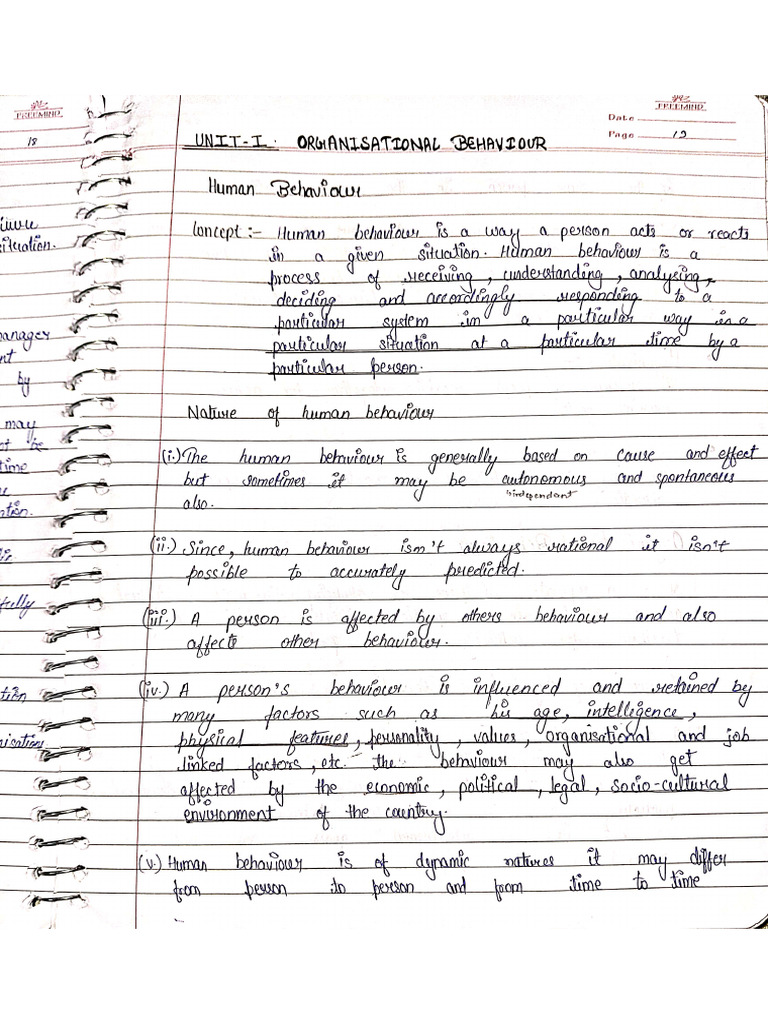 FREEMIND
18
FREEMIND
Date
Page 19
UNIT-I. ORGANISATIONAL BEHAVIOUR
Human Behaviour
Concept :- Human behaviour is a way a person acts or reacts
in a given situation. Human behaviour is a
process of receiving, understanding, analysing,
deciding and accordingly responding to a
particular system in a particular way in a
particular situation at a particular time by a
particular person.
Nature of human behaviour
(i.) The human behaviour is generally based on cause and effect
but sometimes it may be autonomous and spontaneous
independent
also.
(ii.) Since, human behaviour isn't always rational it isn't
possible to accurately predicted.
(iii.) A person is affected by others behaviour and also
affects other behaviour.
(iv.) A person's behaviour is influenced and retained by
many factors such as his age, intelligence,
physical features, personality, values, organisational and job
linked factors, etc. the behaviour may also get
affected by the economic, political, legal, socio-cultural
environment of the country.
(v.) Human behaviour is of dynamic natures it may differ
from person to person and from time to time
situation.
manager
by
may
be
time